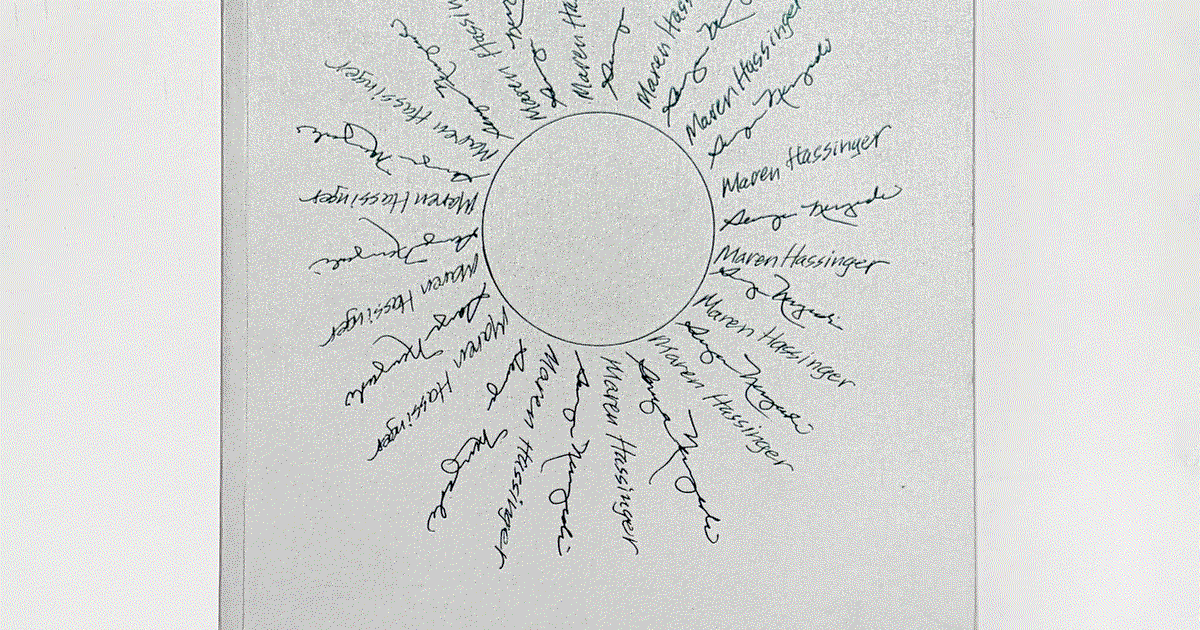 Maren Ha
Senga
Maren Hass
Senga Nen
Maren Hassinger
Senga Nengudi
Maren Hassinger
Senga Nengudi
Maren Hassinger
Senga Nengudi
Maren Hassinger
Senga Nengudi
Maren Hassinger
Senga Nengudi
Maren Hassinger
Senga Nengudi
Maren Hassinger
Senga Nengudi
Maren Hassinger
Senga Nengudi
Maren Hassinger
Senga Nengudi
Maren Hassinger
Senga Nengudi
Maren Hassinger
Senga Nengudi
Maren Hassin
Senga